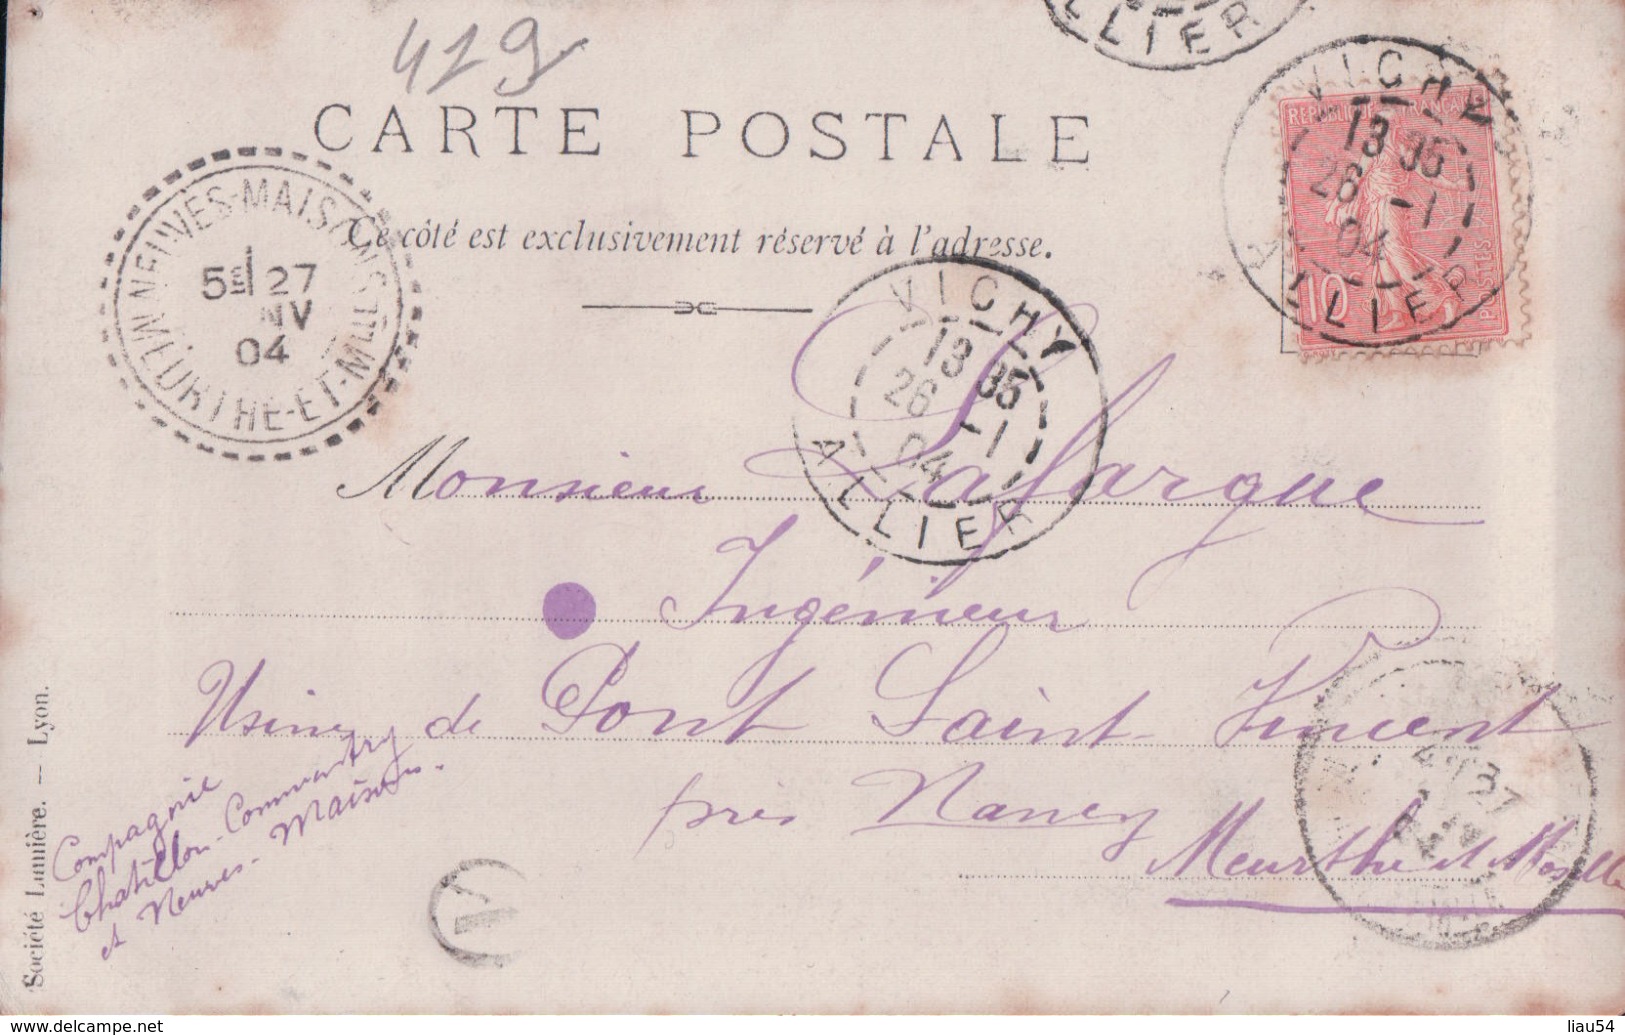 419
ALLIER
CARTE POSTALE
VICHY
13 35
26 -1
04
ALLIER
REPUBLIQUE FRANÇAISE
10
POSTES
NEUVES-MAISONS
5E 27
NV
04
MEURTHE-ET-MLLE
Ce côté est exclusivement réservé à l'adresse.
VICHY
13 35
26 -1
04
ALLIER
Monsieur Lafargue
Ingénieur
Usines de Pont Saint-Vincent
près Nancy
Meurthe et Moselle
Compagnie
Chatillon-Commentry
et Neuves-Maisons.
27
Société Lumière. — Lyon.
www.delcampe.net
liau54